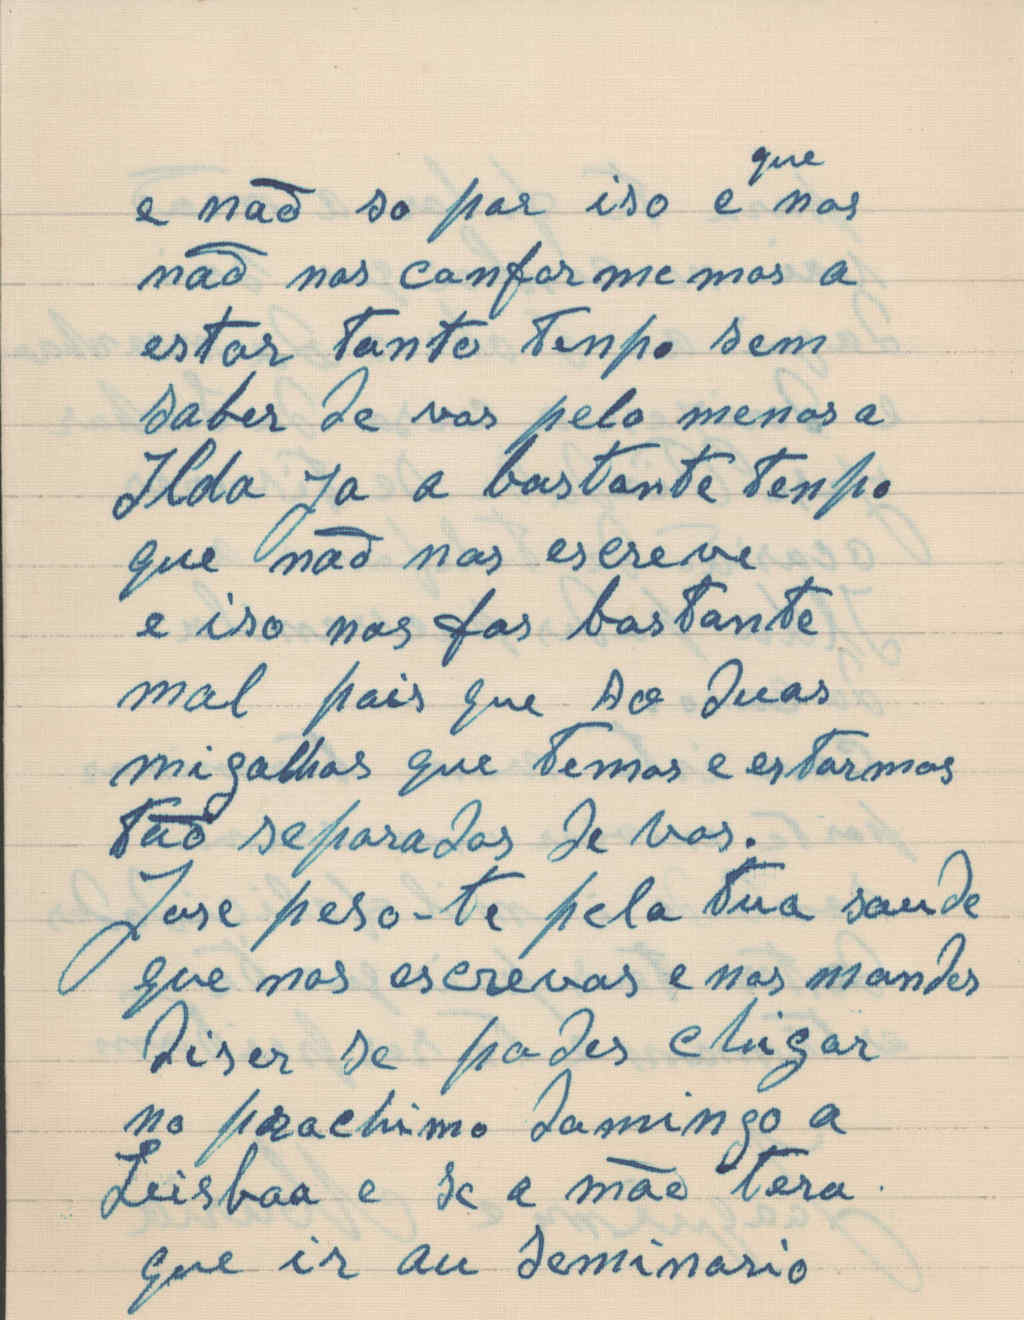 que
e não so por iso é nos
não nos conformemos a
estar tanto tenpo sem
saber de vos pelo menos a
Ilda Ja a bastante tenpo
que não nos escreve
e iso nos fas bastante
mal pois que so duas
migalhas que temos e estarmos
tão separados de vos.
Jose peso-te pela tua saude
que nos escrevas e nos mandes
diser se podes chigar
no prochimo domingo a
Leisboa e se a mão tera
que ir au seminario